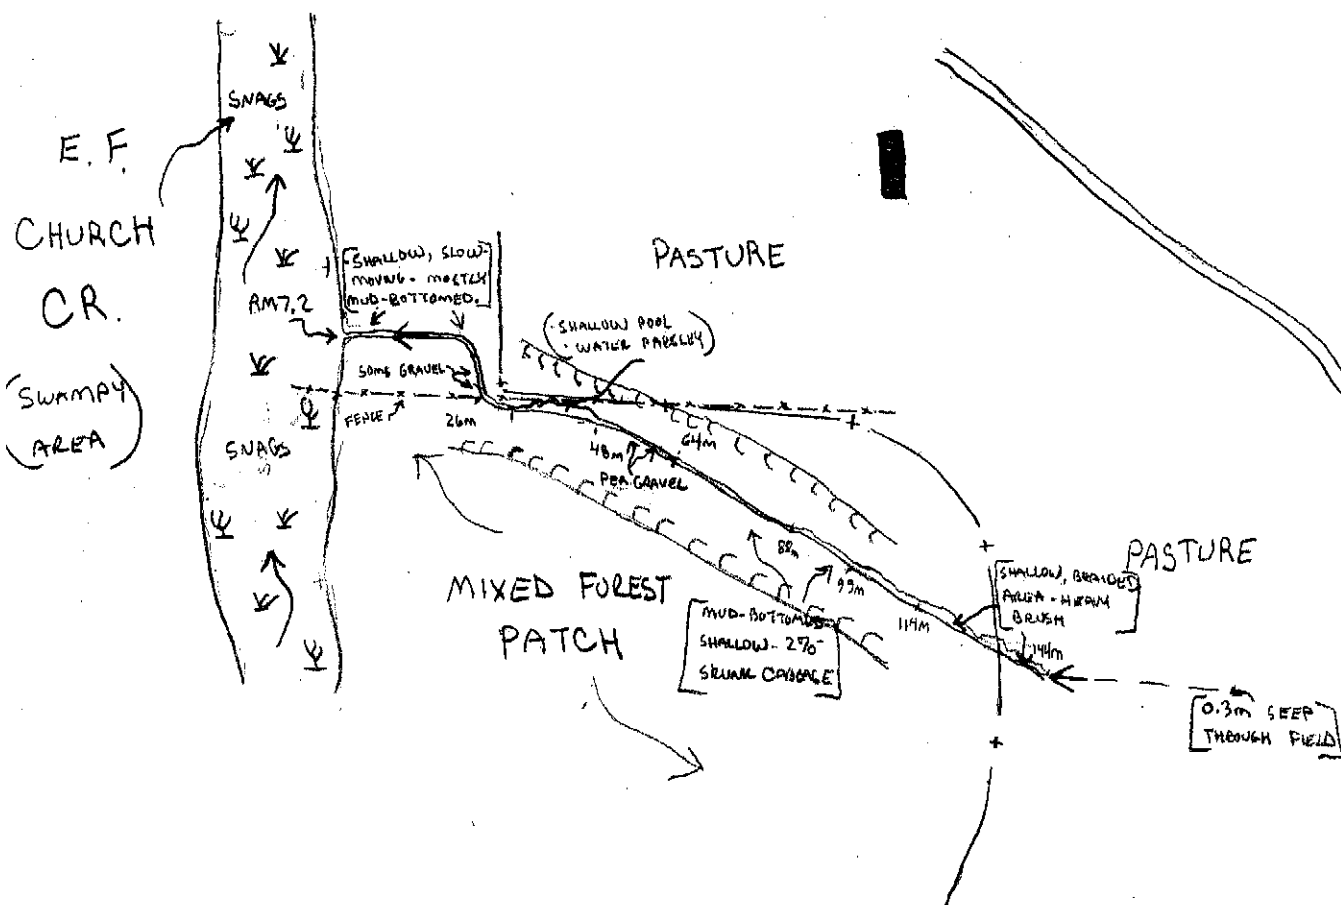 SNAGS
E. F.
CHURCH
CR.
(SWAMPY
AREA)
RM7.2
[SHALLOW, SLOW-
MOVING - MOSTLY
MUD-BOTTOMED.]
SOME GRAVEL
FENCE
26m
SNAGS
PASTURE
(SHALLOW POOL
WATER PARSLEY)
48m
64m
PEA GRAVEL
88m
99m
114m
144m
MIXED FOREST
PATCH
[MUD-BOTTOMED
SHALLOW - 2%
SKUNK CABBAGE]
PASTURE
[SHALLOW, BRAIDED
AREA - HEAVY
BRUSH]
[0.3m SEEP
THROUGH FIELD]